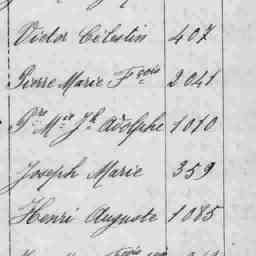 Victor Célestin 407
Pierre Marie Fçois 2041
Pre Mie Jh Adolphe 1010
Joseph Marie 359
Henri Auguste 1085